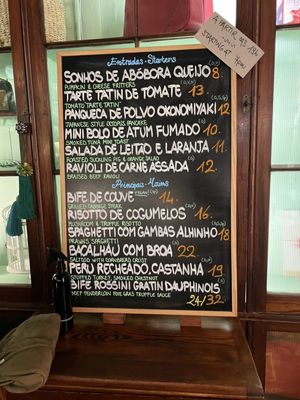 A PARTIR DAS 19H
STARTING AT 7PM
Entradas-Starters
SONHOS DE ABÓBORA QUEIJO 8.
PUMPKIN & CHEESE FRITTERS
TARTE TATIN DE TOMATE 13.
TOMATO "TARTE TATIN"
PANQUECA DE POLVO OKONOMIYAKI 12
JAPANESE STYLE OCTOPUS PANCAKE
MINI BOLO DE ATUM FUMADO 10.
SMOKED TUNA MINI TOAST
SALADA DE LEITÃO E LARANJA 11
ROASTED SUCKLING PIG & ORANGE SALAD
RAVIOLI DE CARNE ASSADA 12.
BRAISED BEEF RAVIOLI
Principais-Mains
BIFE DE COUVE 14.
GRILLED CABBAGE STEAK
RISOTTO DE COGUMELOS 16.
MUSHROOM & TRUFFLE RISOTTO
SPAGHETTI COM GAMBAS ALHINHO 18
PRAWNS SPAGHETTI
BACALHAU COM BROA 22
SALTCOD WITH CORNBREAD CRUST
PERU RECHEADO, CASTANHA 19
STUFFED TURKEY, SMOKED CHESTNUT
BIFE ROSSINI GRATIN DAUPHINOIS
BEEF TENDERLOIN FOIE GRAS TRUFFLE SAUCE 24/32